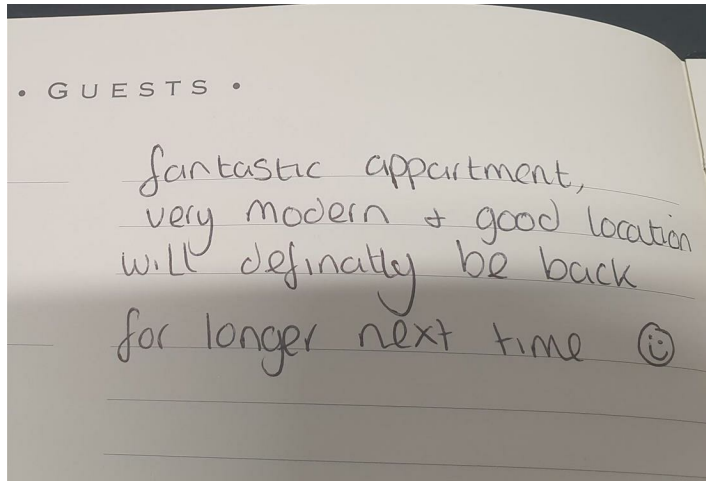 • GUESTS •
fantastic appartment,
very modern + good location
will definatly be back
for longer next time ☺